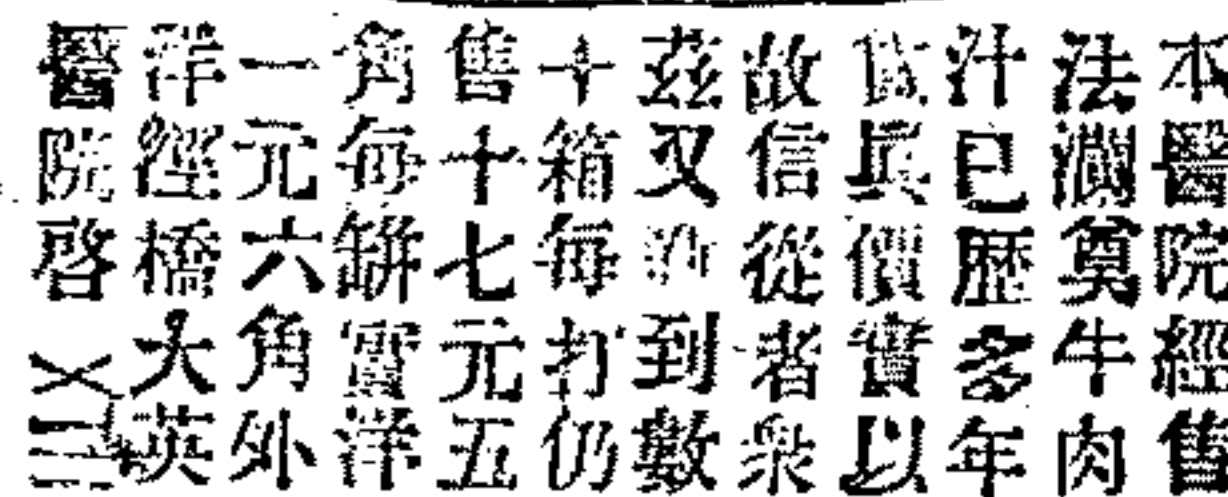 本醫院經售
法蘭奠牛肉
汁已歷多年
貨具價實以
故信從者衆
茲又到數
十箱每打仍
售十七元五
角每缾實洋
一元六角外
洋徑橋大英
醫院啓